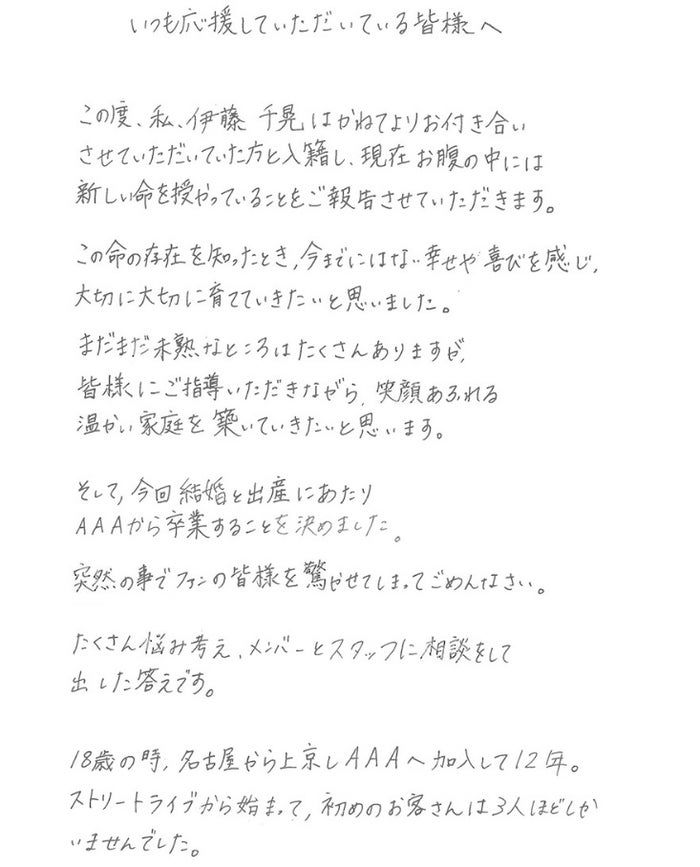 いつも応援していただいている皆様へ
この度、私、伊藤 千晃はかねてよりお付き合い
させていただいていた方と入籍し、現在お腹の中には
新しい命を授かっていることをご報告させていただきます。
この命の存在を知ったとき、今までにはない幸せや喜びを感じ、
大切に大切に育てていきたいと思いました。
まだまだ未熟なところはたくさんありますが、
皆様にご指導いただきながら、笑顔あふれる
温かい家庭を築いていきたいと思います。
そして、今回結婚と出産にあたり
AAAから卒業することを決めました。
突然の事でファンの皆様を驚かせてしまってごめんなさい。
たくさん悩み考え、メンバーとスタッフに相談をして
出した答えです。
18歳の時、名古屋から上京しAAAへ加入して12年。
ストリートライブから始まって、初めのお客さんは3人ほどしか
いませんでした。